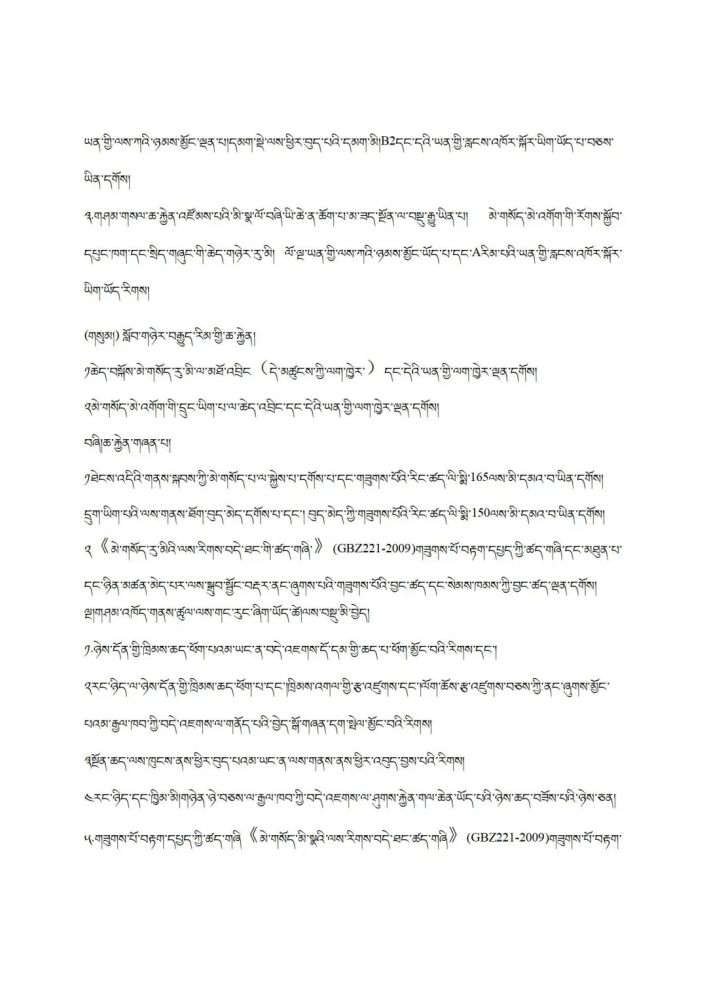 ཡན་གྱི་ལས་ཀའི་ཉམས་མྱོང་ལྡན་པ།དམག་སྡེ་ལས་ཕྱིར་བུད་པའི་དམག་མི།B2དང་དའི་ཡན་གྱི་རླངས་འཁོར་སྐོར་ཡིག་ཡོད་པ་བཅས་
ཡིན་དགོས།
༣.གཤམ་གསལ་ཆ་རྐྱེན་འཛོམས་པའི་མི་སྣ་ལོ་བཞི་ཡི་ཆེ་ན་ཆོག་པ་མ་ཟད་སྔོན་ལ་བསྡུ་རྒྱུ་ཡིན་པ། མེ་གསོད་མེ་འགོག་གི་རོགས་སྐྱོབ་
དཔུང་ཁག་དང་སྲིད་གཞུང་གི་ཆེད་གཉེར་རུ་མི། ལོ་ལྔ་ཡན་གྱི་ལས་ཀའི་ཉམས་མྱོང་ཡོད་པ་དང་Aརིམ་པའི་ཡན་གྱི་རླངས་འཁོར་སྐོར་
ཡིག་ཡོད་རིགས།
(གསུམ།) སློབ་གཉེར་བརྒྱུད་རིམ་གྱི་ཆ་རྐྱེན།
༡ཆེད་བསྐོས་མེ་གསོད་རུ་མི་ལ་མཐོ་འབྲིང（དེ་མཚུངས་ཀྱི་ལག་ཁྱེར་）དང་དེའི་ཡན་གྱི་ལག་ཁྱེར་ལྡན་དགོས།
༢མེ་གསོད་མེ་འགོག་གི་དྲུང་ཡིག་པ་ལ་ཆེད་འབྲིང་དང་དེའི་ཡན་གྱི་ལག་ཁྱེར་ལྡན་དགོས།
བཞི།ཆ་རྐྱེན་གཞན་པ།
༡ཐེངས་འདིའི་གནས་སྐབས་ཀྱི་མེ་གསོད་པ་ལ་སྐྱེས་པ་དགོས་པ་དང་གཟུགས་པོའི་རིང་ཚད་ལི་སྨི་165ལས་མི་དམའ་བ་ཡིན་དགོས།
དྲུག་ཡིག་པའི་ལས་གནས་ཐོག་བུད་མེད་དགོས་པ་དང་། བུད་མེད་ཀྱི་གཟུགས་པོའི་རིང་ཚད་ལི་སྨི་150ལས་མི་དམའ་བ་ཡིན་དགོས།
༢ 《མེ་གསོད་རུ་མིའི་ལས་རིགས་བདེ་ཐང་གི་ཚད་གཞི་》 (GBZ221-2009)གཟུགས་པོ་བརྟག་དཔྱད་ཀྱི་ཚད་གཞི་དང་མཐུན་པ་
དང་ཉིན་མཚན་མེད་པར་ལས་སྒྲུབ་སྦྱོང་བརྡར་ནང་ཞུགས་པའི་གཟུགས་པོའི་བྱང་ཚད་དང་སེམས་ཁམས་ཀྱི་བྱང་ཚད་ལྡན་དགོས།
ལྔ།གཤམ་འཁོད་གནས་ཚུལ་ལས་གང་རུང་ཞིག་ཡོད་ཚེ།ལས་བསྡུ་མི་བྱེད།
༡.ཉེས་དོན་གྱི་ཁྲིམས་ཆད་ཕོག་པའམ་ཡང་ན་བདེ་འཇགས་དོ་དམ་གྱི་ཆད་པ་ཕོག་མྱོང་བའི་རིགས་དང་།
༢རང་ཉིད་ལ་ཉེས་དོན་གྱི་ཁྲིམས་ཆད་ཕོག་པ་དང་།ཁྲིམས་འགལ་གྱི་རྩ་འཛུགས་དང་།ལོག་ཆོས་རྩ་འཛུགས་བཅས་ཀྱི་ནང་ཞུགས་མྱོང་
པའམ་རྒྱལ་ཁབ་ཀྱི་བདེ་འཇགས་ལ་གནོད་པའི་བྱེད་སྒོ་གཞན་དག་སྤེལ་མྱོང་བའི་རིགས།
༣སྔོན་ཆད་ལས་ཁུངས་ནས་ཕྱིར་བུད་པའམ་ཡང་ན་ལས་གནས་ནས་ཕྱིར་འབུད་བྱས་པའི་རིགས།
༤རང་ཉིད་དང་ཁྱིམ་མི།གཉེན་ཉེ་བཅས་ལ་རྒྱལ་ཁབ་ཀྱི་བདེ་འཇགས་ལ་ཤུགས་རྐྱེན་གལ་ཆེན་ཡོད་པའི་ཉེས་ཆད་བཟོས་པའི་ཉེས་ཅན།
༥.གཟུགས་པོ་བརྟག་དཔྱད་ཀྱི་ཚད་གཞི 《མེ་གསོད་མི་སྣའི་ལས་རིགས་བདེ་ཐང་ཚད་གཞི》 (GBZ221-2009)གཟུགས་པོ་བརྟག་